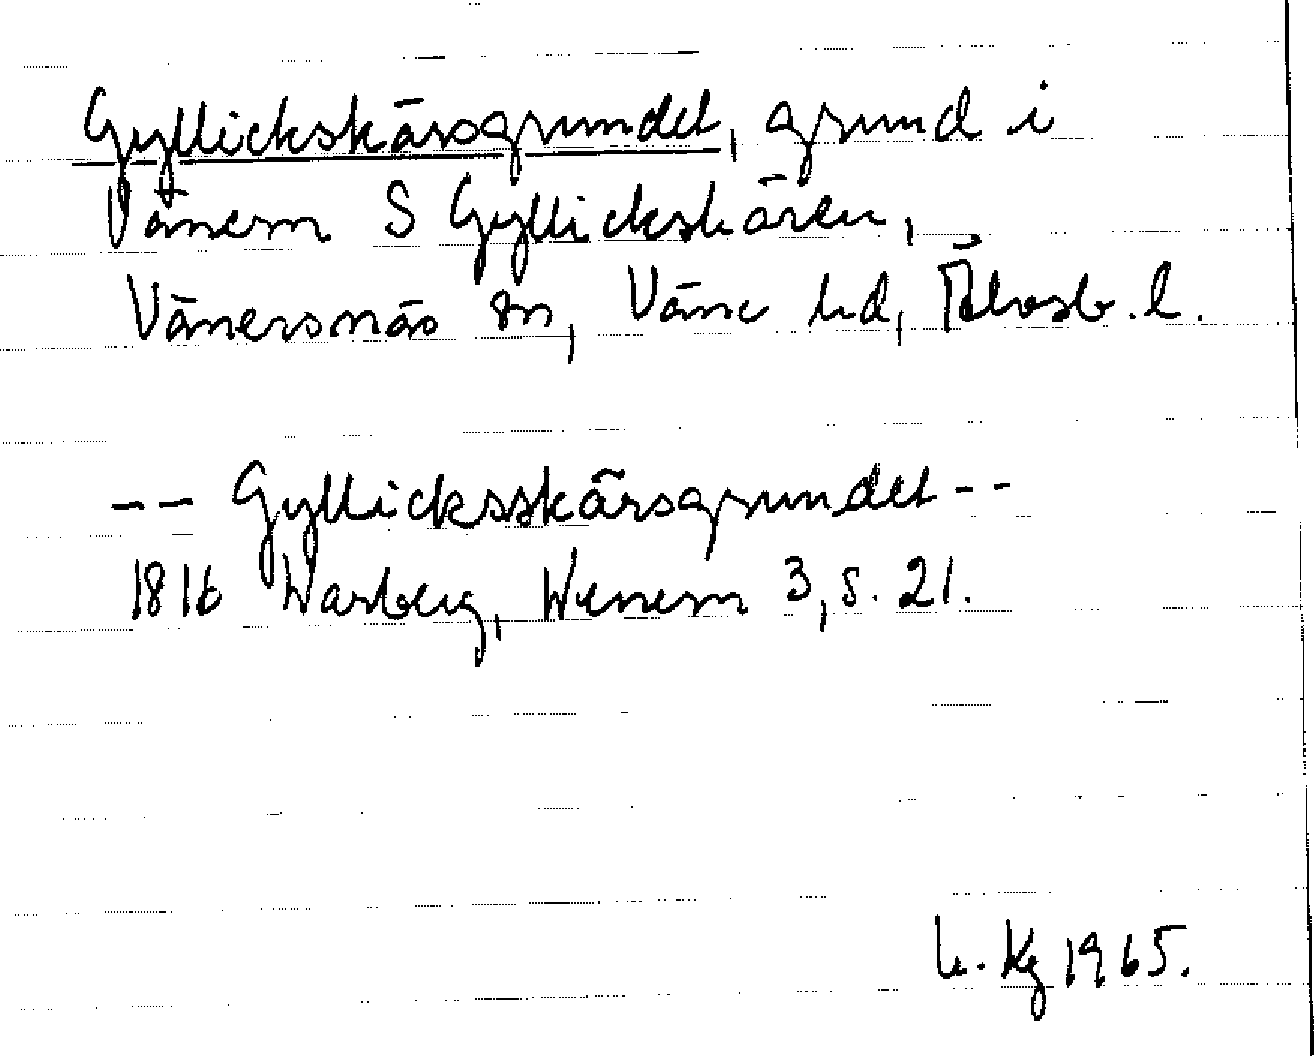 Gyllickskärsgrundet, grund i
Vänern S Gyllickskären,
Vänersnäs sn, Väne hd, Älvsb. l.
-- Gyllicksskärsgrundet --
1816 Warberg, Wenern 3, s. 21.
Kg 1965.